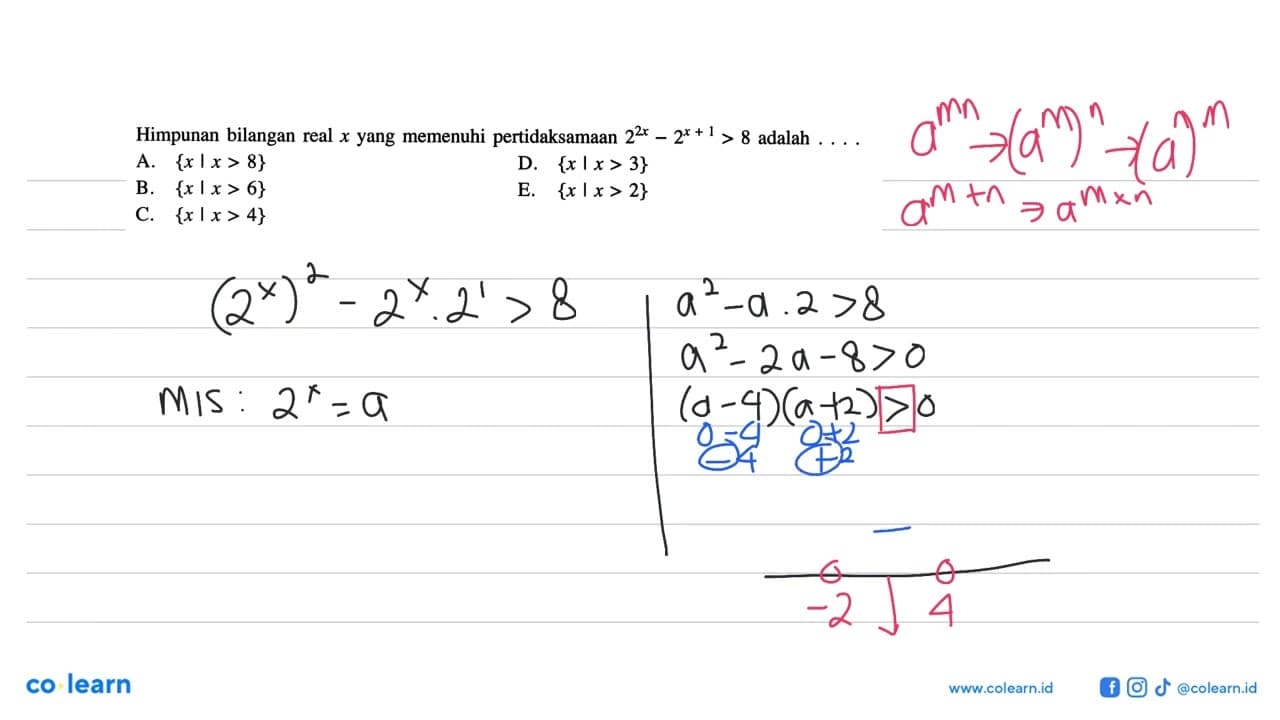 Himpunan bilangan real x yang memenuhi pertidaksamaan 2^{2x} – 2^{x + 1} > 8 adalah . . . .
A. {x | x > 8}
B. {x | x > 6}
C. {x | x > 4}
D. {x | x > 3}
E. {x | x > 2}
a^{mn} → (a^m)^n → (a^n)^m
a^{m+n} ⇒ a^{m×n}
(2^x)^2 - 2^x . 2^1 > 8
MIS : 2^x = a
a^2 - a . 2 > 8
a^2 - 2a - 8 > 0
(a - 4)(a + 2) > 0
0 - 4 0 + 2
- 4 + 2
-
-2 4
co learn
www.colearn.id @colearn.id